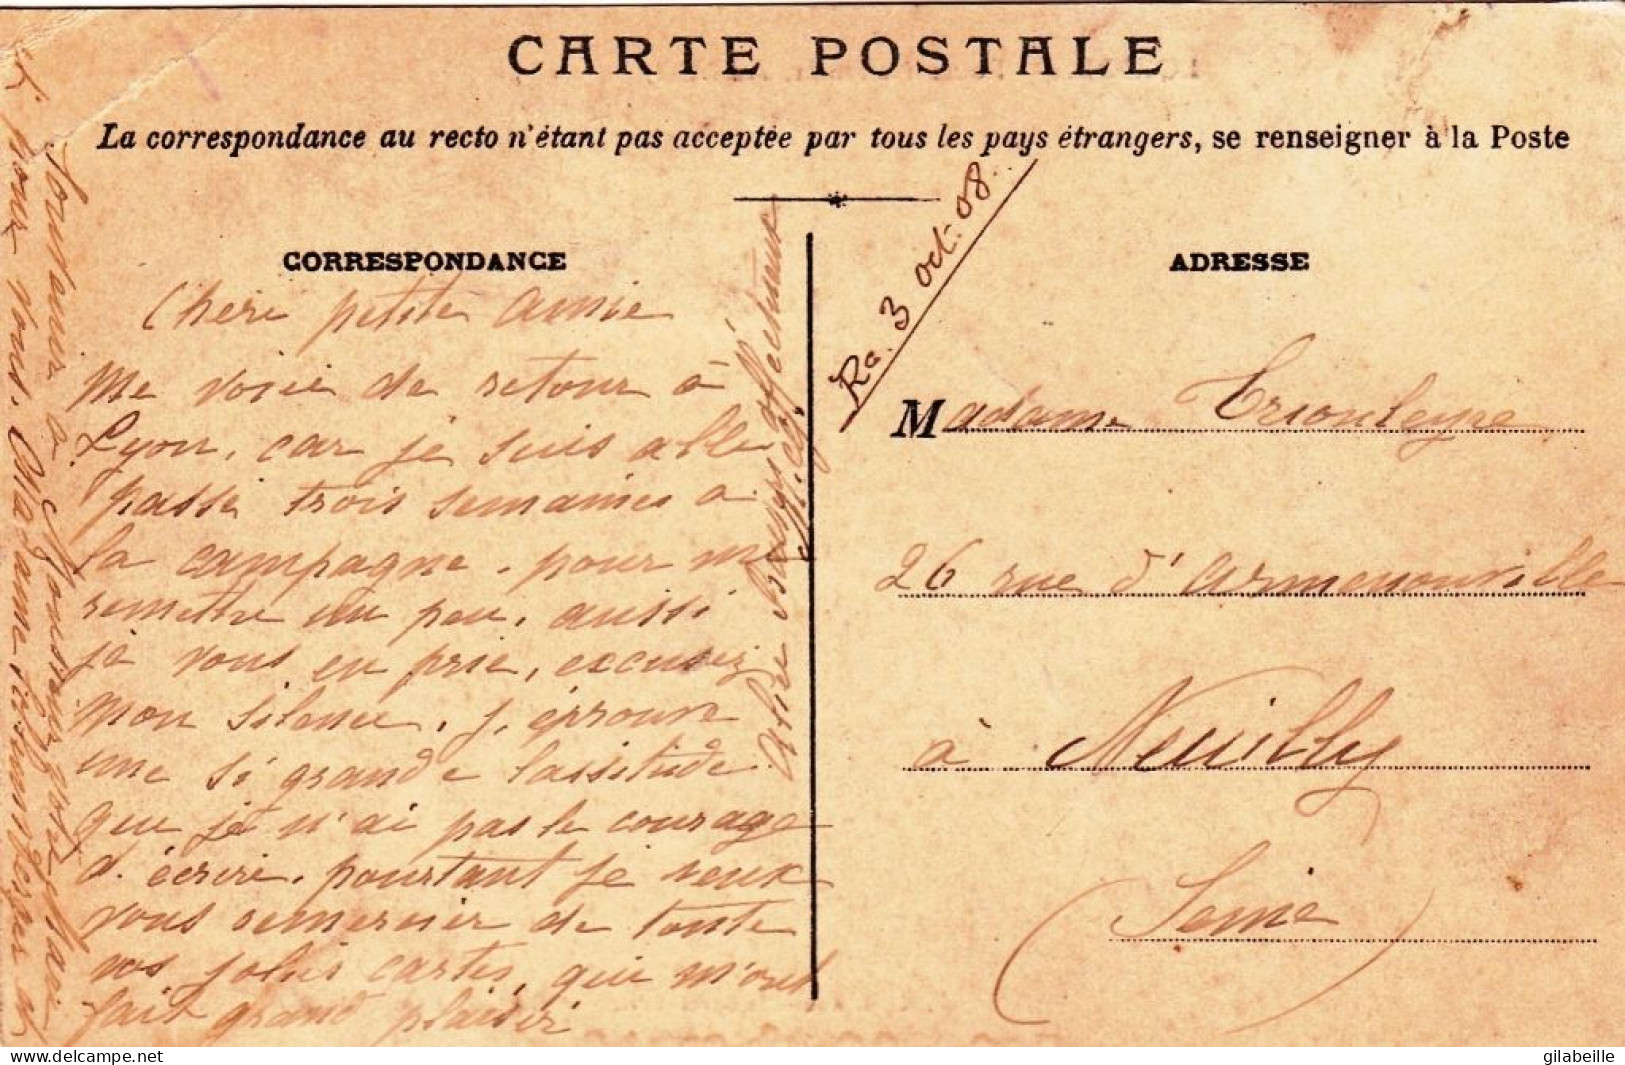 CARTE POSTALE
La correspondance au recto n'étant pas acceptée par tous les pays étrangers, se renseigner à la Poste
CORRESPONDANCE
Chere petite amie
me voici de retour à
Lyon, car je suis allée
passé trois semaines a
la campagne, pour me
remettre un peu, aussi
je vous en prie, excusez
mon silence, j'éprouve
une si grande lassitude
que je n'ai pas le courage
d'écrire, pourtant je veux
vous remercier de toute
vos jolies cartes, qui m'ont
fait grand plaisir
a Monsieur votre Mari
et pour vous, Madame
affectueux
Re. 3 oct. 08.
ADRESSE
Madame Triouleyre
26 rue d'Armenonville
à Neuilly
(Seine)
delcampe.net
gilabeille